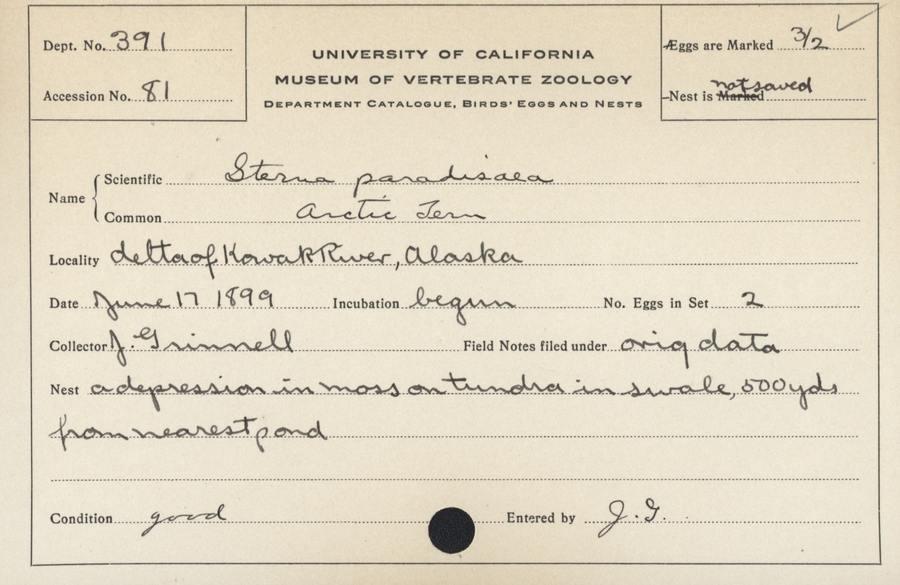 Dept. No. 391
Accession No. 81
UNIVERSITY OF CALIFORNIA
MUSEUM OF VERTEBRATE ZOOLOGY
DEPARTMENT CATALOGUE, BIRDS' EGGS AND NESTS
Eggs are Marked 3/2
not saved
Nest is Marked
Name
Scientific Sterna paradisaea
Common Arctic Tern
Locality delta of Kowak River, Alaska
Date June 17 1899 Incubation begun No. Eggs in Set 2
Collector J. Grinnell Field Notes filed under orig data
Nest a depression in moss on tundra in swale, 500 yds
from nearest pond
Condition good Entered by J. G.